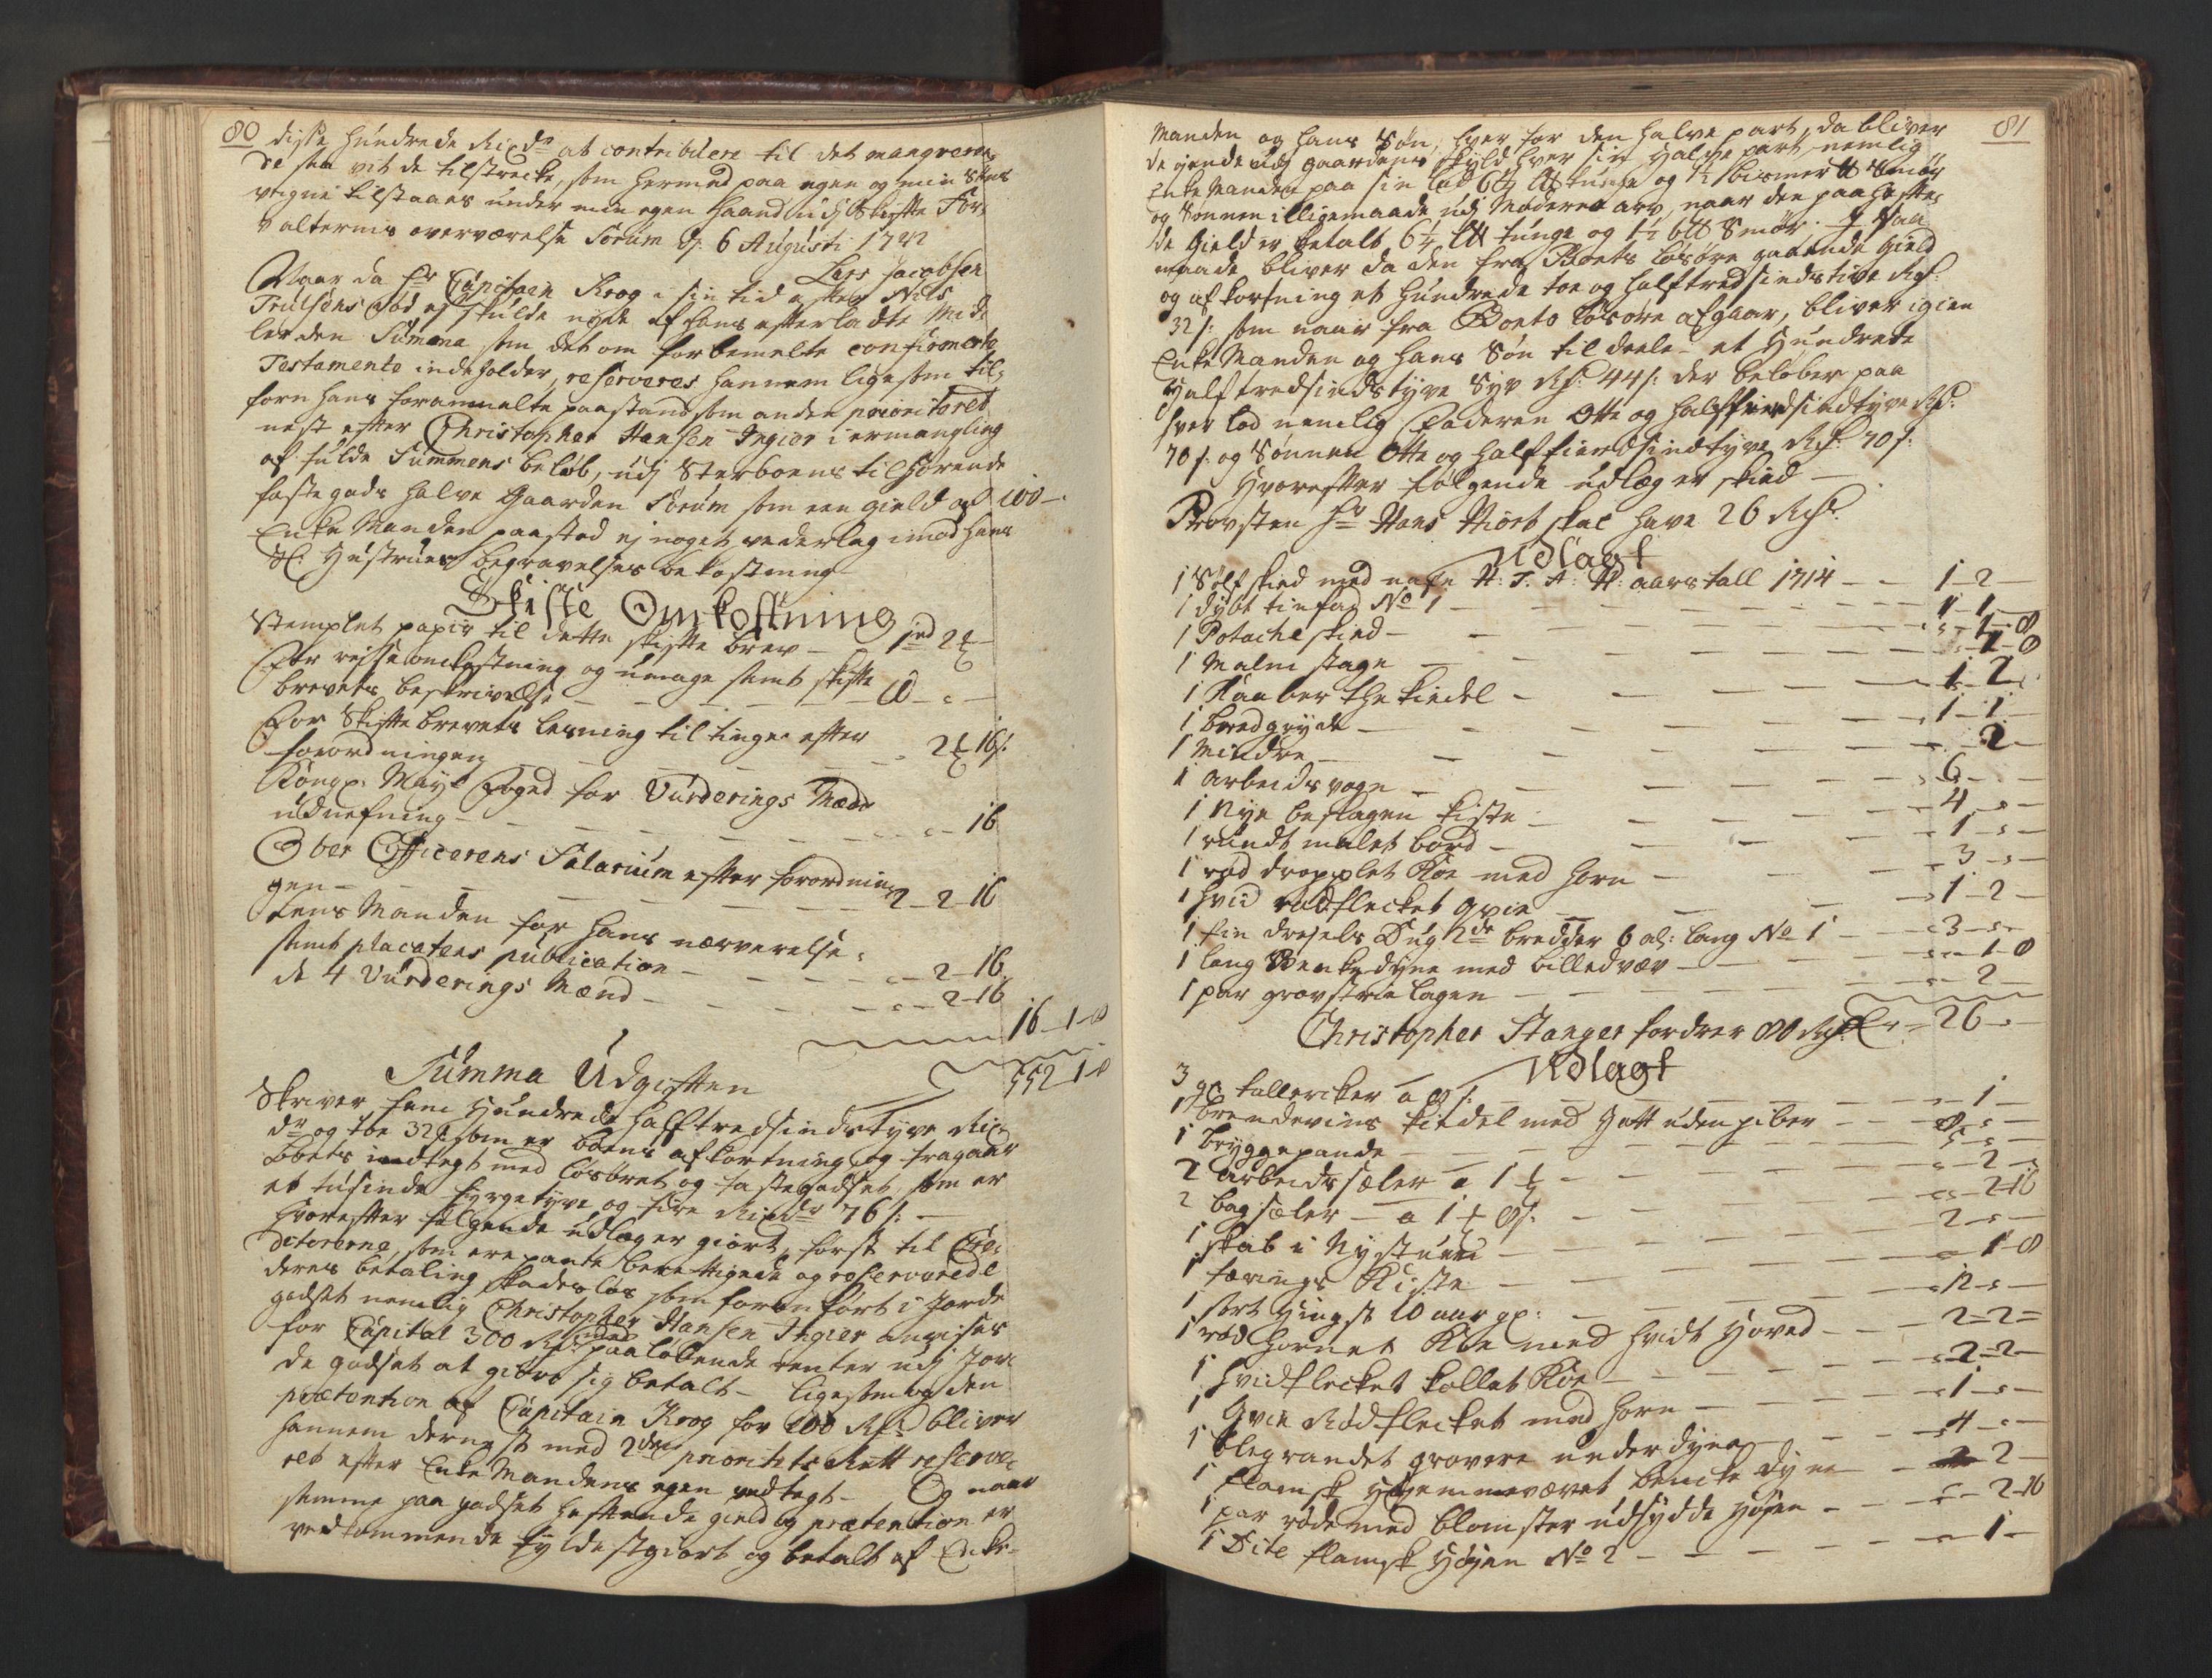 80
disse hundrede Rixdr at contribuere til det mangrende
de saa vit de tilstrecke, som hermed paa egne og min Søns
vegne tilstaaes under min egen Haand udj Skifte For-
valterens overværelse Sørum d. 6 Augusti 1722
Lars Jacobsen
Naar da Hr Capitain Krog i sin tid efter Nils
Trulsens Død ej skulde nyde af hans efterladte Mid-
ler den Summa som det om forbemelte confirmerte
Testamente indeholder, reserveres hannem ligesom til-
forn hans foranmelte paastand som anden prioriteret
nest efter Christopher Hansen Ingier i ermangling
af fulde Summens beløb, udj Sterboens tilhørende
faste gods halve Gaarden Sørum som een gield af 100 –
Enke Manden paastod ej noget vederlag imod hans
Sl: Hustrues begravelses bekostning
Skifte Omkostning
Stemplet papir til dette skifte brev – 1 rd 2 ƶ
For reise omkostning og umage samt skifte
brevets beskrivelse – – – 8 – " –
For Skifte brevets lesning til tinge efter
forordningen – – – 2 ƶ 16 s:
Kongl. Mayts Foged for Vurderings Mænds
udnefning – – – " – " – 16
Ober Officerens Salarium efter forordnin-
gen – – – 2 – 2 – 16
Lens Manden for hans nærverelse
samt placatens publication – – " – 2 – 16
de 4 Vurderings Mænd – – " – 2 – 16
16 – 1 – 8
Summa Udgiften 552 1 8
Skriver fem Hundrede halftredsindstyve Rix
dr og toe 32 s: som er boens afkortning og fragaar
Boets indtegt med løsøret og faste godset, som er
et tusinde fyrgetyve og fire Rixdr 76 s: –
Hvorefter følgende udleg er giort, først til Cre-
ditorerne, som ere pante berettigede og reserverede
deres betaling skadesløs som foranført i Jorde
godset nemlig Christopher Hansen Ingier anvises
for Capital 300 Rdr: med paaløbende renter udj Jor-
de godset at giøre sig betalt – ligesom og den
prætention af Capitain Krog for 100 Rdr bliver
hannem dernest med 2den prioritets Rett reserve-
ret efter Enke Mandens egen vedtegt – Og naar
samme paa godset heftende gield og prætention er
vedkommende fyldestgiort og betalt af Enke-
81
Manden og hans Søn, hver for den halve part, da bliver
de eyende udj gaardens skyld hver sin halve part, nemlig
Enke Manden paa sin lod 6¼ L℔ tunge og 1½ bismer ℔ Smør
og Sønnen i lligemaade udj Moderne arv, naar den paaheftes
de Gield er betalt 6¼ L℔ tunge og 1½ b℔ Smør. I saa
maade bliver da den fra Boets løsøre gaaende Gield
og afkortning et hundrede toe og halftredsindstive Rdr:
32 s: som naar fra Boets løsøre afgaar, bliver igien
Enke Manden og hans Søn til deele – et Hundrede
Halftredsindstyve Syv Rdr: 44 s: der beløber paa
hver lod nemlig Faderen Otte og halffierdsindtyve Rdr:
70 s: og Sønnen Otte og halffierdsindtyve Rdr: 70 s:
Hvorefter følgende udleg er skied –
Provsten Hr Hans Hiort skal have 26 Rdr:
Udlagt
1 Sølf skied med nafn H: T: A: H: aars tall 1714 – – 1 – 2 –
1 dybt tinfad No 1 – – – 1 – 1 –
1 Potache skied – – – " – 1 – 8
1 Malm stage – – – " – 1 – 8
1 Kaaber the kiedel – – – 1 – 2 –
1 bredgryde – – – 1 – 1 –
1 Mindre – – – – 2 –
1 arbeids vogn – – – 6 – –
1 Nye beslagen kiste – – – 4 – " –
1 rundt malet bord – – – 1 – " –
1 rød dropplet Koe med horn – – 3 – " –
1 hvid rødflecket qvie – – – 1 – 2 –
1 fin drejels Dug 2de bredder 6 al: lang No 1 – – 3 – " –
1 lang Benkedyne med billedvæv – – " – 1 – 8
1 par grovstrie lagen – – – " – 2 –
26 – "
Christopher Stanger fordrer 80 Rdr
Udlagt
3 gl: tallercker a 8 s: – – – 1 –
1 brendevins kiedel med Hatt uden piber – – 8 – " –
1 bryggepande – – – 5 – " –
2 arbeids sæler a 1 ƶ – – – " – 2 –
2 bagsæler – a 1 ƶ 8 s: – – " – 2 – 16
1 skab i Nystuen – – – 2 – " –
1 færings Kiste – – – " – 1 – 8
1 sort Hingst 10 aar gl: – – – 12 – " –
1 rød hornet Koe med hvidt Hoved – – – 2 – 2 –
1 hvidflecket kollet Koe – – – 2 – 2 –
1 qvie Rødflecket med horn – – – 1 – " –
1 blegrandet grovere underdyne – – 4 – " –
1 flamsk Hiemmevævet bencke dyne – – 2 –
1 par røde med blomster udsydde Hosen – – " – 2 – 16
1 Dite flamsk Hosen No 2 – – – " – 1 –